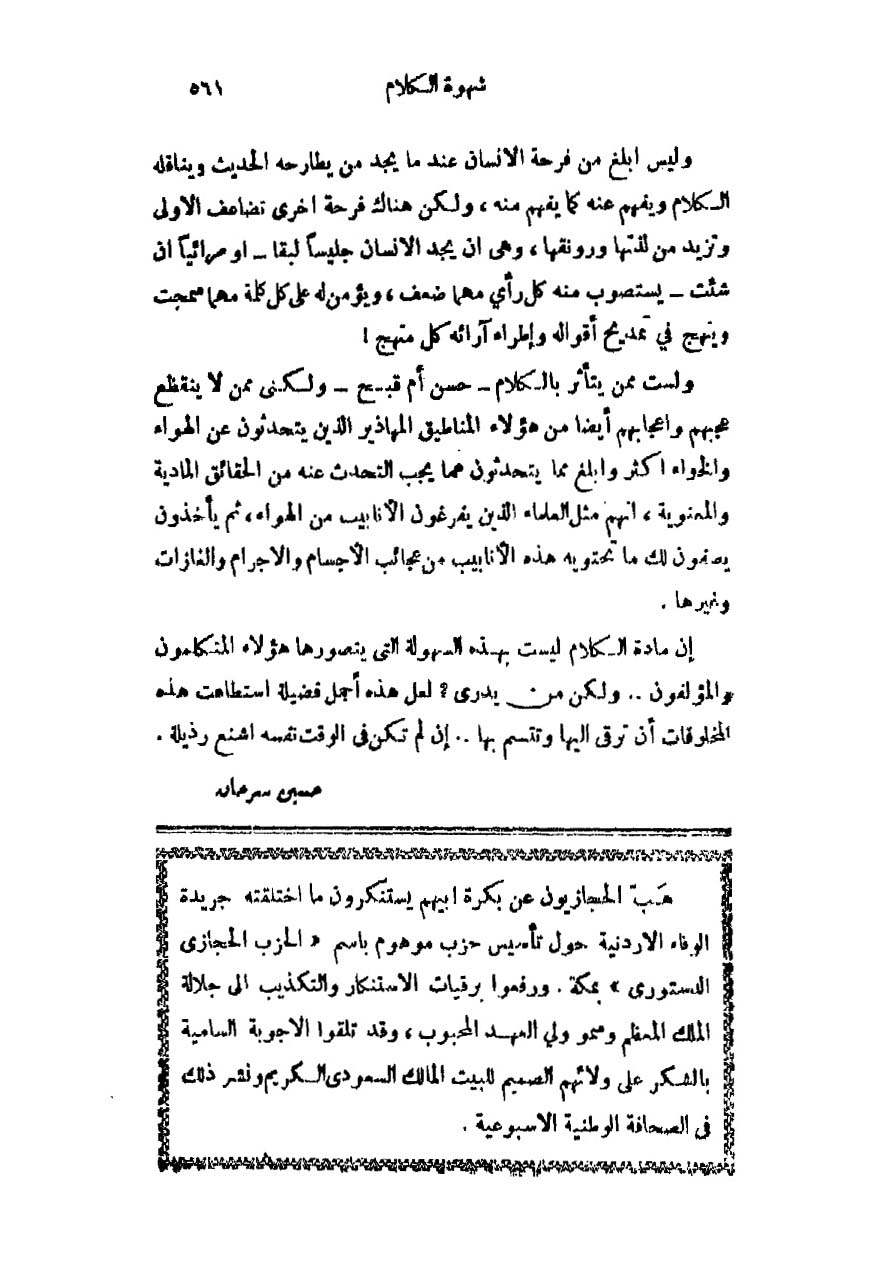 شهوة الكلام ٥٦١
وليس ابلغ من فرحة الانسان عند ما يجد من يطارحه الحديث ويناقله
الكلام ويفهم عنه كما يفهم منه ، ولكن هناك فرحة اخرى تضاعف الاولى
وتزيد من لذتها ورونقها ، وهى ان يجد الانسان جليساً لبقا ــ او مرائياً ان
شئت ــ يستصوب منه كل رأي مهما ضعف ، ويؤمن له على كل كلمة مهما سمجت
وينهج في تمديح أقواله وإطراء آرائه كل منهج !
ولست ممن يتأثر بالكلام ــ حسن أم قبيح ــ ولكنى ممن لا ينقطع
عجبهم واعجابهم أيضا من هؤلاء المناطيق المهاذير الذين يتحدثون عن الهواء
والخواء اكثر وابلغ مما يتحدثون عما يجب التحدث عنه من الحقائق المادية
والمعنوية ، انهم مثل العلماء الذين يفرغون الأنابيب من الهواء ، ثم يأخذون
يصفون لك ما تحتويه هذه الأنابيب من عجائب الأجسام والاجرام والغازات
وغيرها .
إن مادة الكلام ليست بهذه السهولة التى يتصورها هؤلاء المتكلمون
والمؤلفون .. ولكن من يدرى ؟ لعل هذه أجمل فضيلة استطاعت هذه
المخلوقات أن ترقى اليها وتتسم بها .. إن لم تكن فى الوقت نفسه اشنع رذيلة .
حسين سرحان
هَبّ الحجازيون عن بكرة ابيهم يستنكرون ما اختلقته جريدة
الوفاء الاردنية حول تأسيس حزب موهوم باسم « الحزب الحجازى
الدستورى » بمكة . ورفعوا برقيات الاستنكار والتكذيب الى جلالة
الملك المعظم وسمو ولي العهد المحبوب ، وقد تلقوا الاجوبة السامية
بالشكر على ولائهم الصميم للبيت المالك السعودى الكريم ونشر ذلك
فى الصحافة الوطنية الاسبوعية .